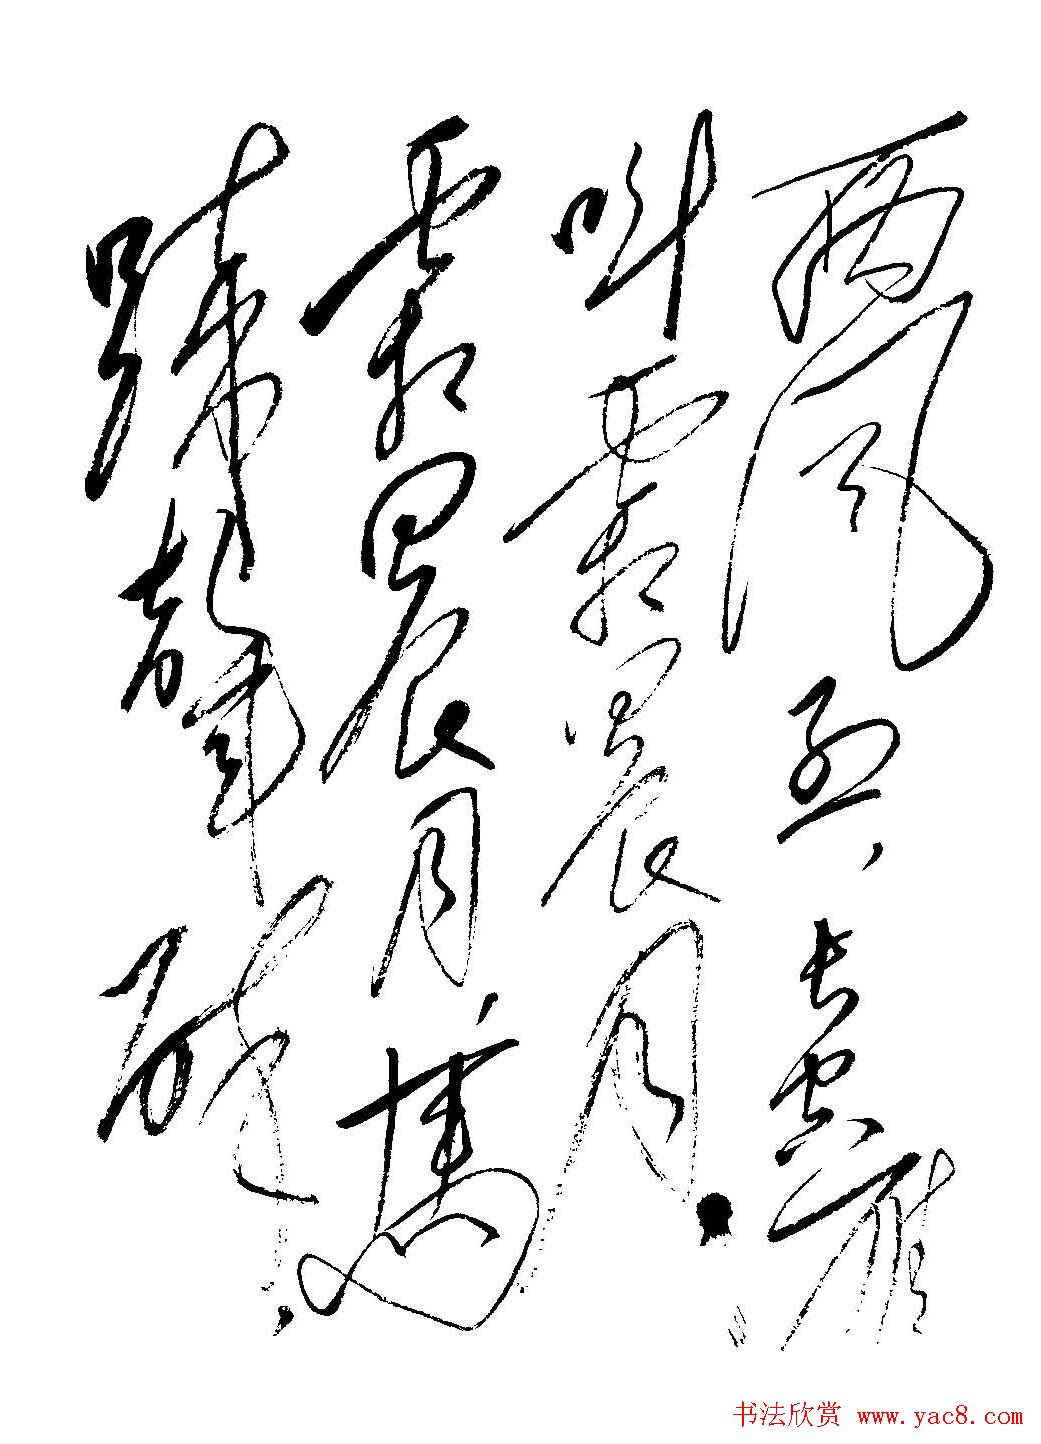 西风烈，长空雁
叫霜晨月。
霜晨月，马
蹄声碎，
书法欣赏 www.yac8.com